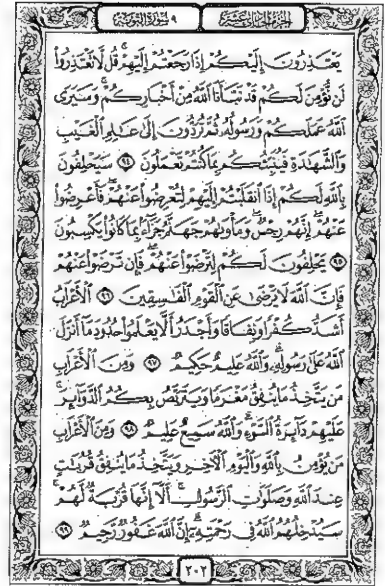 الجزء الحادي عشر ٩ سورة التوبة
يَعْتَذِرُونَ إِلَيْكُمْ إِذَا رَجَعْتُمْ إِلَيْهِمْ قُل لَّا تَعْتَذِرُوا
لَن نُّؤْمِنَ لَكُمْ قَدْ نَبَّأَنَا اللَّهُ مِنْ أَخْبَارِكُمْ وَسَيَرَى
اللَّهُ عَمَلَكُمْ وَرَسُولُهُ ثُمَّ تُرَدُّونَ إِلَى عَالِمِ الْغَيْبِ
وَالشَّهَادَةِ فَيُنَبِّئُكُم بِمَا كُنتُمْ تَعْمَلُونَ ٩٤ سَيَحْلِفُونَ
بِاللَّهِ لَكُمْ إِذَا انقَلَبْتُمْ إِلَيْهِمْ لِتُعْرِضُوا عَنْهُمْ فَأَعْرِضُوا
عَنْهُمْ إِنَّهُمْ رِجْسٌ وَمَأْوَاهُمْ جَهَنَّمُ جَزَاءً بِمَا كَانُوا يَكْسِبُونَ
٩٥ يَحْلِفُونَ لَكُمْ لِتَرْضَوْا عَنْهُمْ فَإِن تَرْضَوْا عَنْهُمْ
فَإِنَّ اللَّهَ لَا يَرْضَى عَنِ الْقَوْمِ الْفَاسِقِينَ ٩٦ الْأَعْرَابُ
أَشَدُّ كُفْرًا وَنِفَاقًا وَأَجْدَرُ أَلَّا يَعْلَمُوا حُدُودَ مَا أَنزَلَ
اللَّهُ عَلَى رَسُولِهِ وَاللَّهُ عَلِيمٌ حَكِيمٌ ٩٧ وَمِنَ الْأَعْرَابِ
مَن يَتَّخِذُ مَا يُنفِقُ مَغْرَمًا وَيَتَرَبَّصُ بِكُمُ الدَّوَائِرَ
عَلَيْهِمْ دَائِرَةُ السَّوْءِ وَاللَّهُ سَمِيعٌ عَلِيمٌ ٩٨ وَمِنَ الْأَعْرَابِ
مَن يُؤْمِنُ بِاللَّهِ وَالْيَوْمِ الْآخِرِ وَيَتَّخِذُ مَا يُنفِقُ قُرُبَاتٍ
عِندَ اللَّهِ وَصَلَوَاتِ الرَّسُولِ أَلَا إِنَّهَا قُرْبَةٌ لَّهُمْ
سَيُدْخِلُهُمُ اللَّهُ فِي رَحْمَتِهِ إِنَّ اللَّهَ غَفُورٌ رَّحِيمٌ ٩٩
٢٠٢